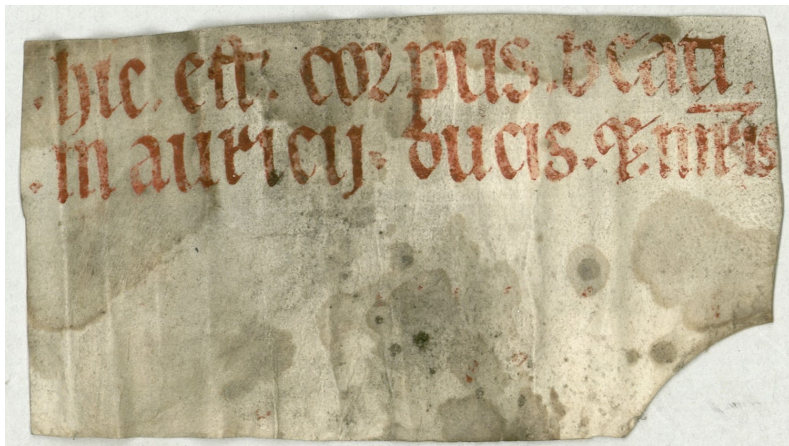 · hic . est . corpus . beati .
· mauricij · ducis . & . mr̅is